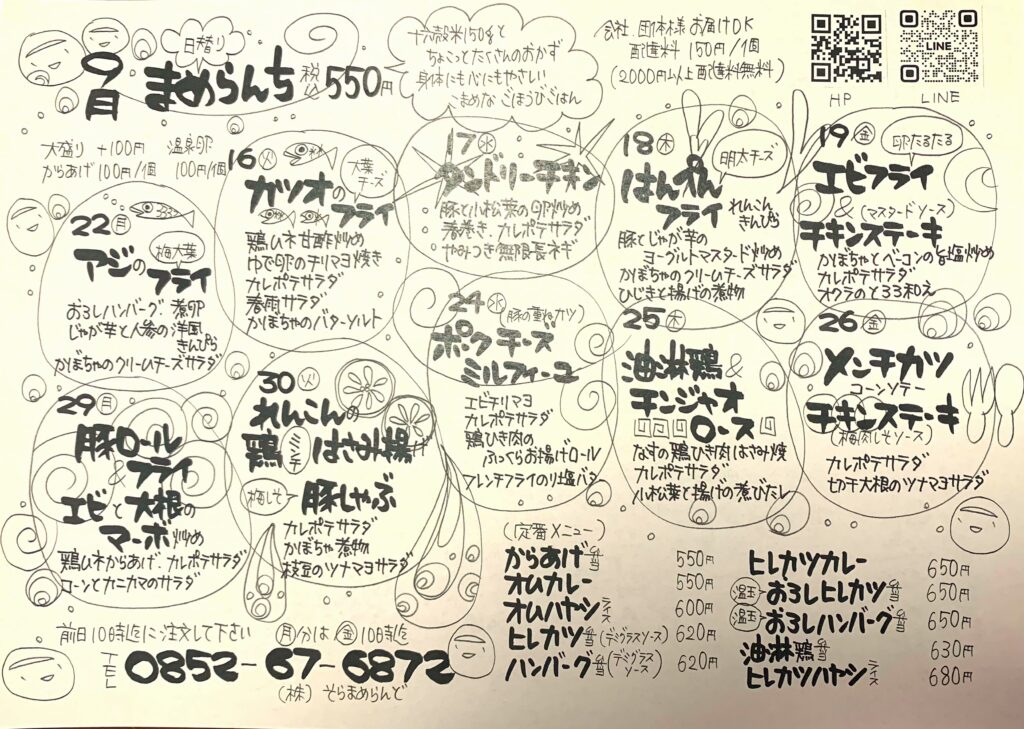 9月
日替り
まめらんち 税込 550円
十六穀米150gと
ちょこっとたくさんのおかず
身体にも心にもやさしい
こまめなごほうびごはん
会社.団体様お届けOK
配達料 150円/個
(2000円以上配達料無料)
HP
LINE
LINE
大盛り +100円 温泉卵
からあげ100円/個 100円/個
16 火
大葉チーズ
カツオの
フライ
鶏ムネ甘酢炒め
ゆで卵のチリマヨ焼き
カレポテサラダ
春雨サラダ
かぼちゃのバターソルト
17 水
タンドリーチキン
豚と小松菜の卵炒め
春巻き.カレポテサラダ
やみつき無限長ネギ
18 木
明太チーズ
はんぺん
フライ れんこんきんぴら
豚とじゃが芋の
ヨーグルトマスタード炒め
かぼちゃのクリームチーズサラダ
ひじきと揚げの煮物
19 金
卵たるたる
エビフライ
& (マスタードソース)
チキンステーキ
かぼちゃとベーコンの塩炒め
カレポテサラダ
オクラのとろろ和え
22 月
梅大葉
アジの
フライ
おろしハンバーグ.煮卵
じゃが芋と人参の洋風きんぴら
かぼちゃのクリームチーズサラダ
24 水
(豚の重ねカツ)
ポークチーズ
ミルフィーユ
エビチリマヨ
カレポテサラダ
鶏ひき肉の
ふっくらお揚げロール
フレンチフライのり塩バタ
25 木
油淋鶏&
チンジャオ
ロース
なすの鶏ひき肉はさみ焼
カレポテサラダ
小松菜と揚げの煮びたし
26 金
メンチカツ
コーンソテー
チキンステーキ
(梅肉しそソース)
カレポテサラダ
切干大根のツナマヨサラダ
29 月
豚ロール
&フライ
エビと大根の
マーボ炒め
鶏ムネからあげ.カレポテサラダ
コーンとカニカマのサラダ
30 火
れんこんの
鶏ミンチはさみ揚げ
梅しそ 豚しゃぶ
カレポテサラダ
かぼちゃ煮物
枝豆のツナマヨサラダ
(定番メニュー)
からあげ弁当 550円
オムカレー 550円
オムハヤシライス 600円
ヒレカツ弁当(デミグラスソース) 620円
ハンバーグ弁当(デミグラスソース) 620円
ヒレカツカレー 650円
温玉 おろしヒレカツ弁当 650円
温玉 おろしハンバーグ弁当 650円
油淋鶏弁当 630円
ヒレカツハヤシライス 680円
前日10時迄に注文して下さい 月分は金10時迄
TEL 0852-67-6872
(株)そらまめらんど